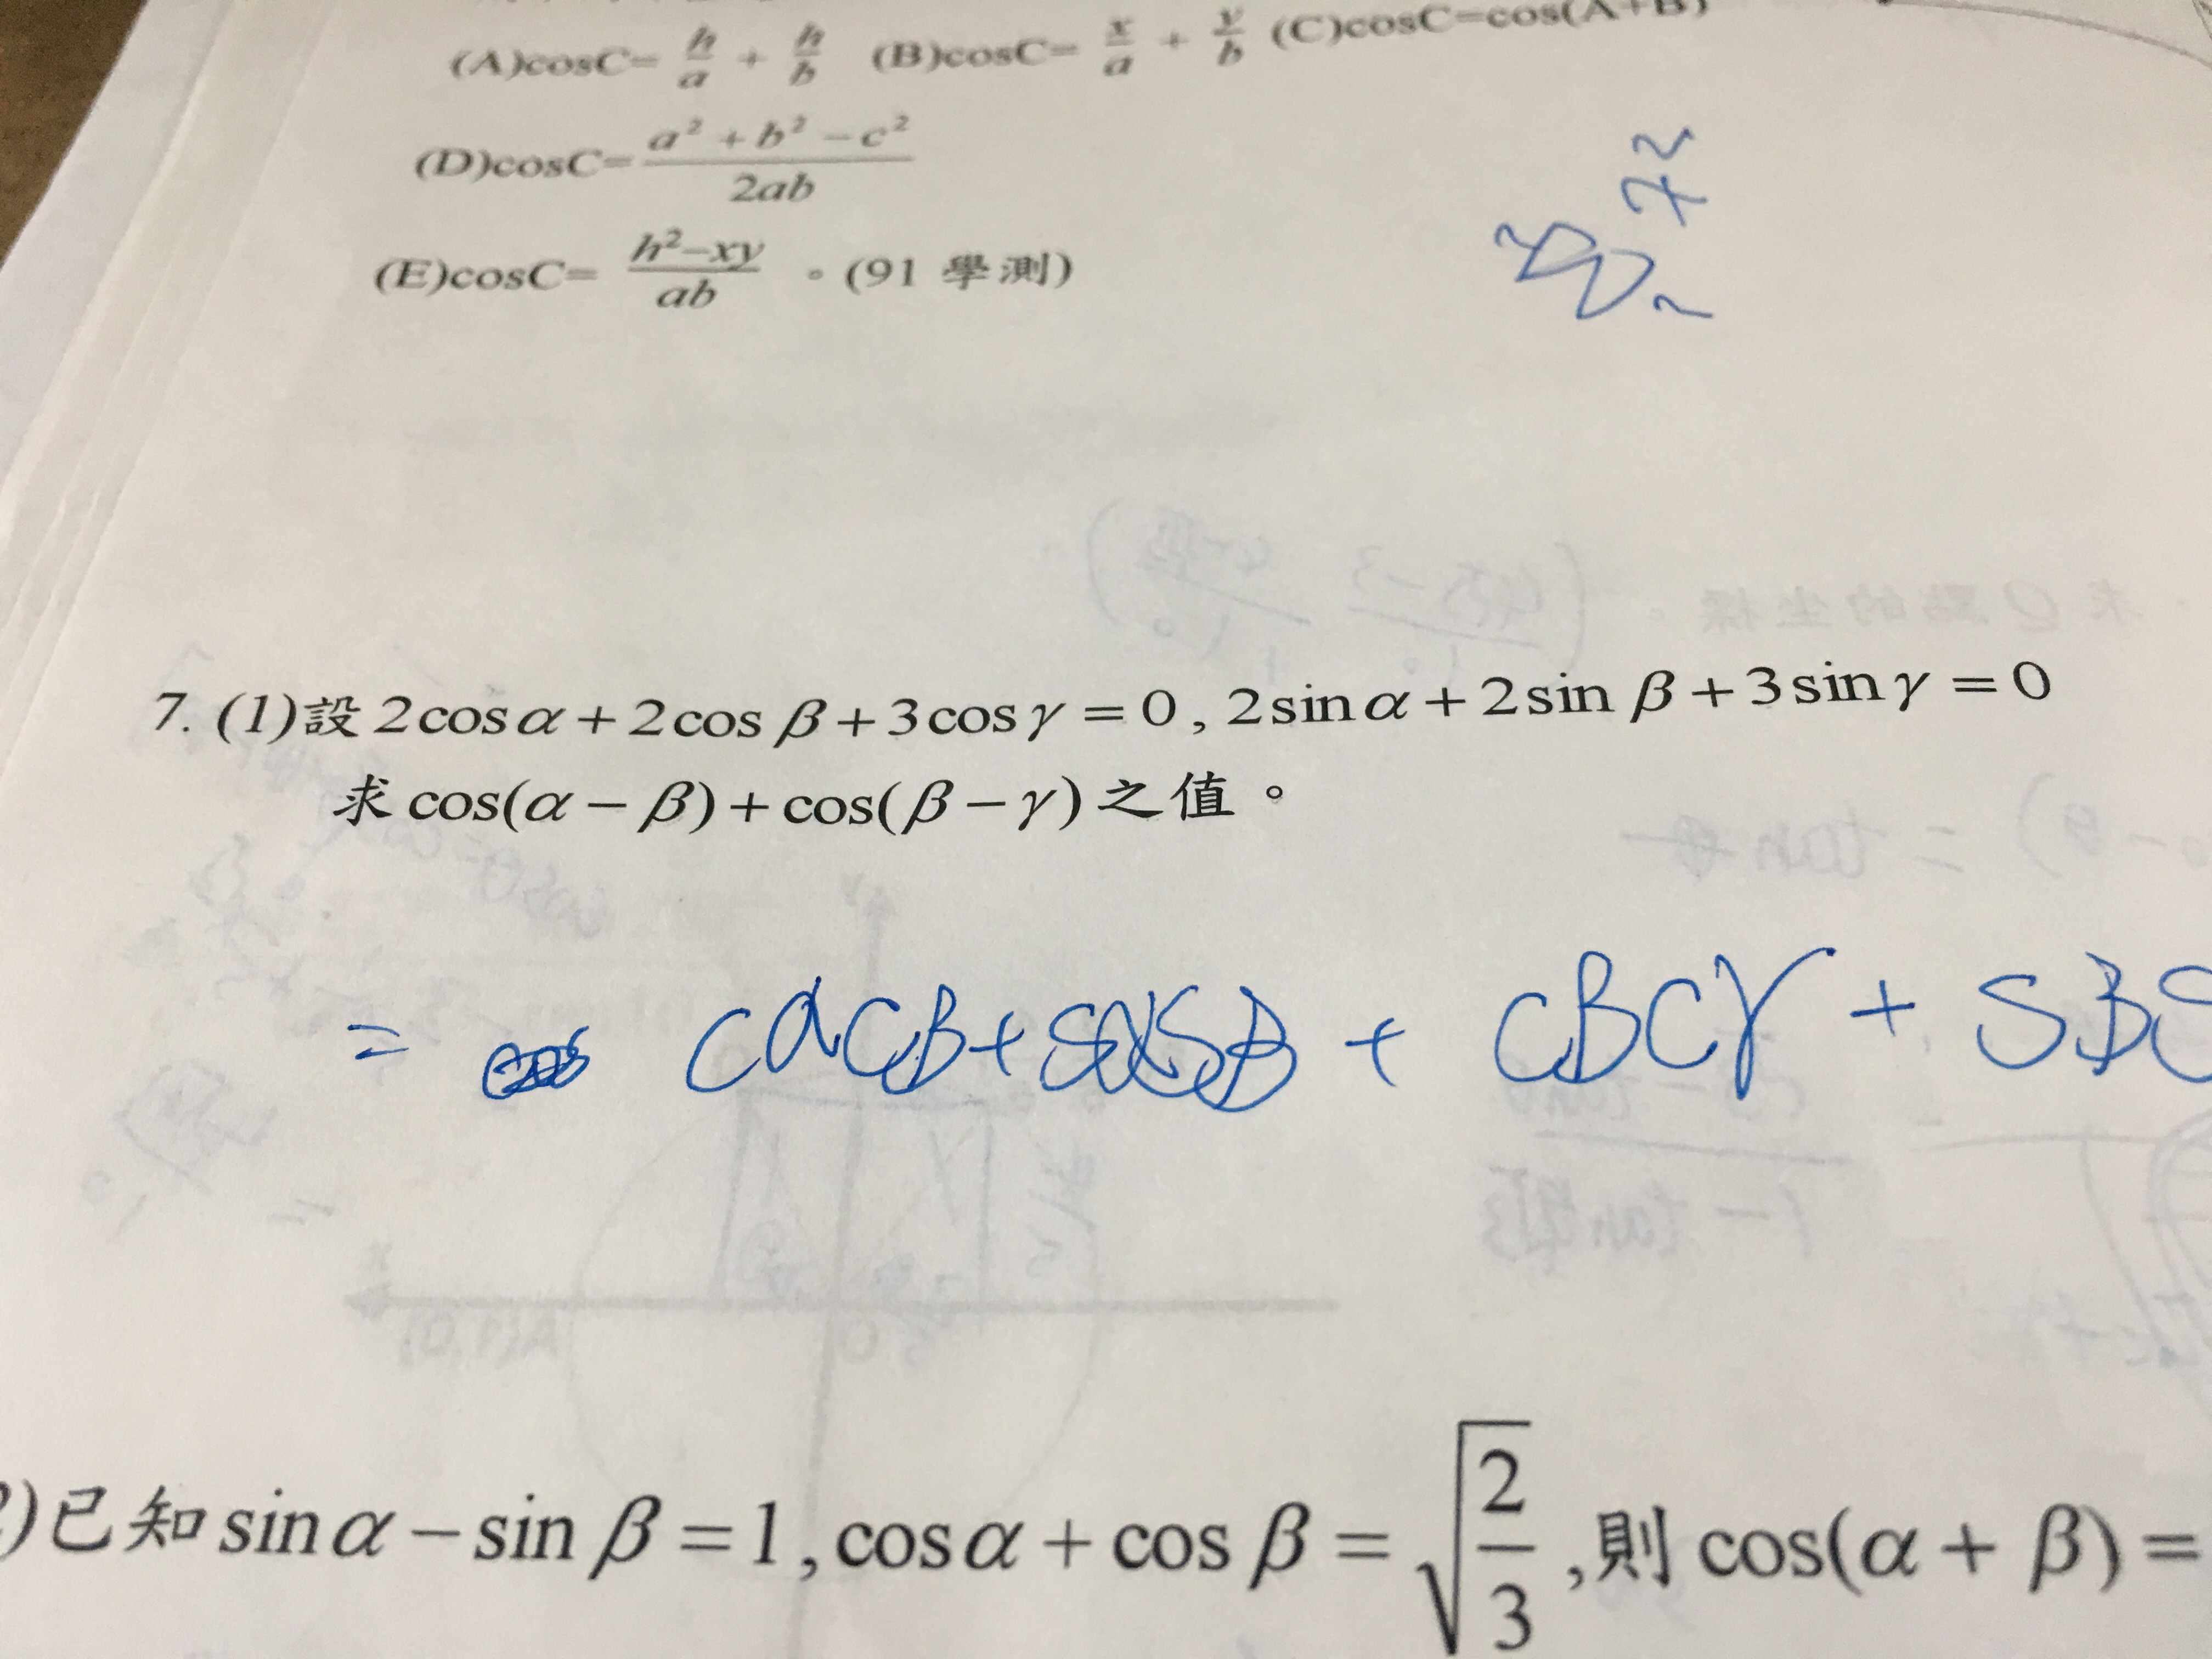 (A)cosC= h/a + h/b (B)cosC= x/a + y/b (C)cosC=cos(A+B)
(D)cosC= (a²+b²−c²)/2ab
(E)cosC= (h²−xy)/ab 。(91 學測)
7. (1)設 2cosα+2cosβ+3cosγ=0, 2sinα+2sinβ+3sinγ=0
求 cos(α−β)+cos(β−γ)之值。
= CαCB+SαSB + CBCγ + SBS
)已知 sinα−sinβ=1,cosα+cosβ=√(2/3) ,則 cos(α+β)=